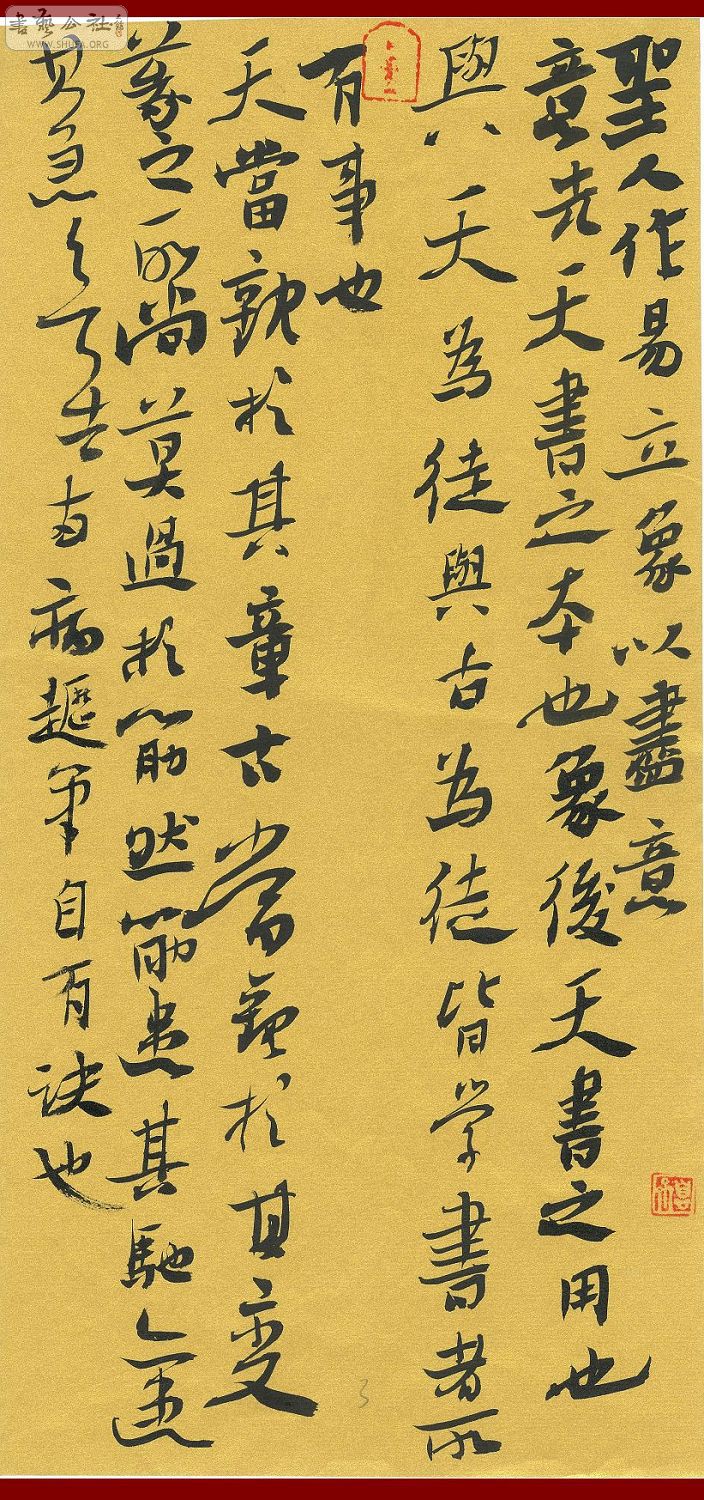 書藝公社
WWW.SHUFA.ORG
聖人作易立象以盡意
意先天書之本也象後天書之用也
與天為徒與古為徒皆学書者所
有事也
天當觀於其章古當觀於其變
篆之所尚莫過於筋然筋患其馳亦患
其急欲去両病趯筆自有訣也
3